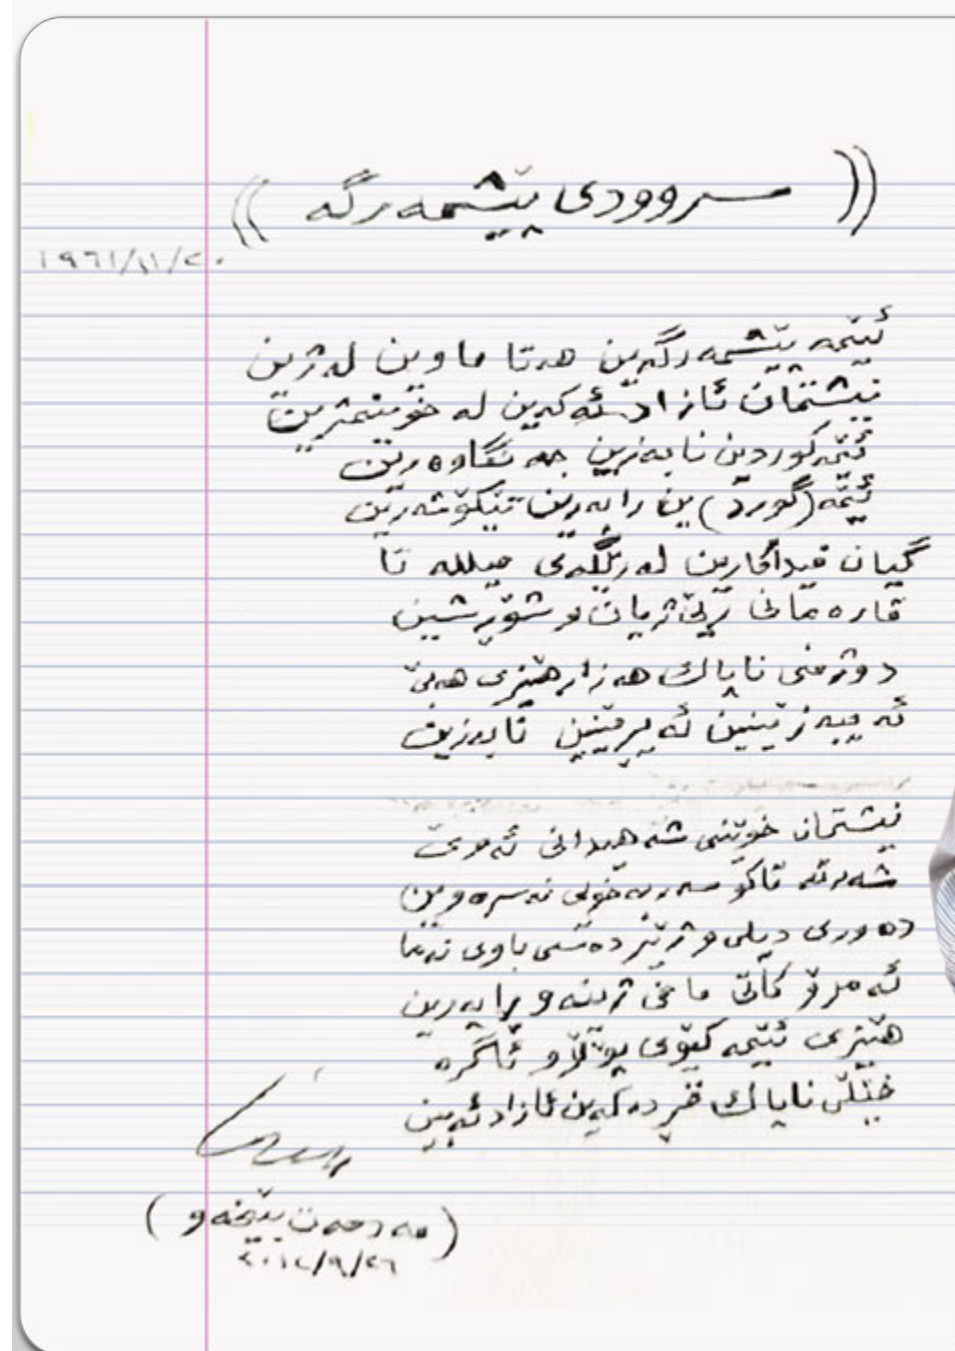 (( سروودی پێشمەرگە ))
١٩٦١/١١/٢٠
ئێمە پێشمەرگەین هەتا ماوین لە ژین
نیشتمان ئازاد ئەکەین لە خوێنمژین
ئێمە کوردین نابەزین جەنگاوەرین
ئێمە (گورد) ین ڕابەرین تێکۆشەرین
گیان فیداکارین لە ڕێگەی میللەتا
قارەمانی ڕێی ژیان و شۆڕشین
دوژمنی ناپاک هەزار هێزی هەبێ
ئەیبەزێنین ئەیپرمێنین نابەزین
نیشتمان خوێنی شەهیدانی ئەوێ
شەرتە تاکو سەربەخۆیی نەسرەوین
دەوری دیلی و ژێردەستی باوی نەما
ئەمڕۆ کاتی مافی ژینە و ڕاپەڕین
هێزی ئێمە کێوی پۆڵاو ئاگرە
خێڵی ناپاک قڕ دەکەین ئازاد ئەبین
(مەدحەت بێخەو)
٢٠١٢/٩/٢٦